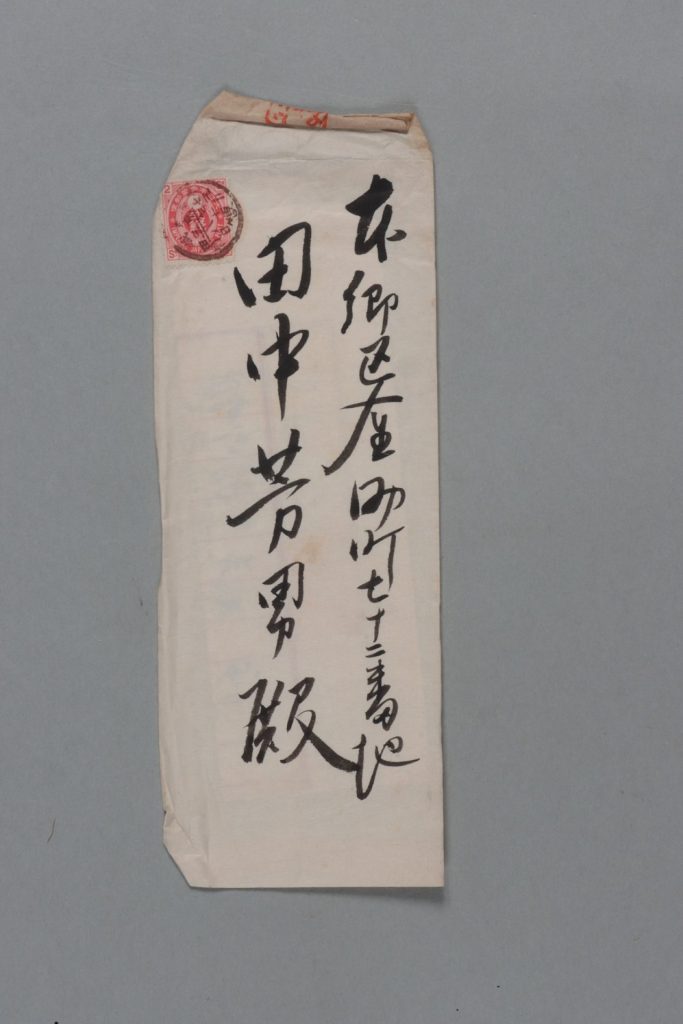 本郷区金助町七十二番地
田中芳男殿